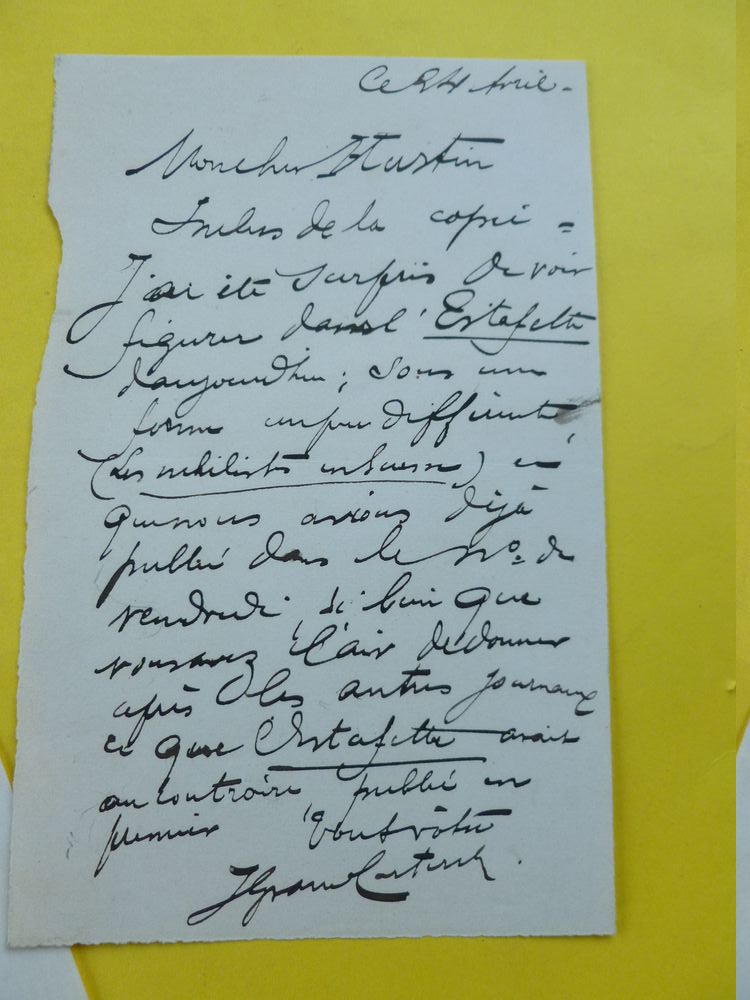 Ce 24 Avril -
Mon cher
Inclus de la copie =
J'ai été surpris de voir
figurer dans l'Estafette
d'aujourd'hui ; sous une
forme un peu différente
(Les nihilistes en Suisse) ce
que nous avions déjà
publié dans le No. de
vendredi si bien que
vous avez l'air de donner
après les autres journaux
ce que l'Estafette avait
au contraire publié en
premier Tout vôtre